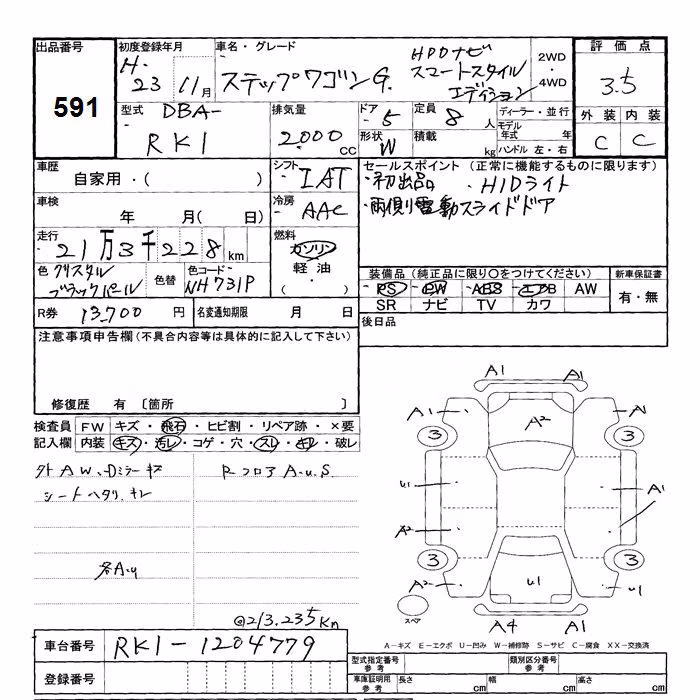 出品番号 591
初度登録年月 H. 23 11月
車名・グレード ステップワゴンG. HDDナビ スマートスタイル エディション
2WD ・ 4WD
評価点 3.5
外装 内装
C C
型式 DBA- RK1
排気量 2.000 cc
ドア 5
定員 8 人
形状 W
積載 kg
ディーラー・並行
モデル年式 年
ハンドル 左・右
車歴 自家用・( )
シフト IAT
車検 年 月( 日)
冷房 AAC
走行 21万3千228km
燃料 ガソリン 軽油 ・
色 クリスタル ブラックパール
色替
色コード NH731P
R券 13,700 円
名変通知期限 月 日
セールスポイント (正常に機能するものに限ります)
・初出品 ・HIDライト
・両側電動スライドドア
装備品(純正品に限り○をつけてください)
PS PW ABS エアB AW
SR ナビ TV カワ
新車保証書
有・無
後日品
注意事項申告欄(不具合内容等は具体的に記入して下さい)
修復歴 有 〔箇所 〕
検査員記入欄
FW キズ・飛石・ヒビ割・リペア跡・×要
内装 キズ・汚レ・コゲ・穴・スレ・キレ・破レ
外AW、Dミラーキズ
シートヘタリ、キレ
RフロアA.U.S
各A.U
@213.235Km
A1 A1
A1 A2 A1
3 3
U1 A1
A2
3 3
A2 U1 U1
スペア
A4 A1
A-キズ E-エクボ U-凹み W-補修跡 S-サビ C-腐食 XX-交換済
車台番号 RK1-1204779
登録番号
型式指定番号 参考
類別区分番号 参考
車庫証明用 参考 長さ cm 幅 cm 高さ cm